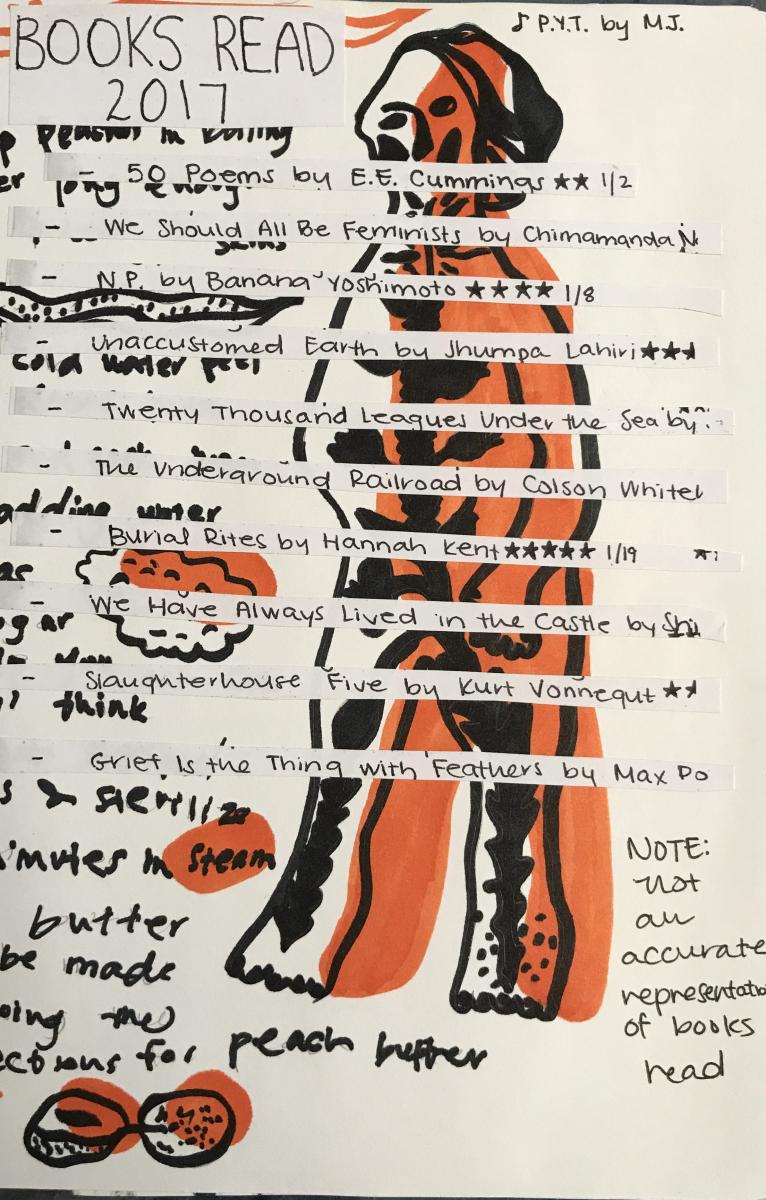 BOOKS READ
2017
♪ P.Y.T. by M.J.
- 50 Poems by E.E. Cummings ★★ 1/2
- We Should All Be Feminists by Chimamanda N
- N.P. by Banana Yoshimoto ★★★★ 1/8
- Unaccustomed Earth by Jhumpa Lahiri ★★★
- Twenty Thousand Leagues Under the Sea by
- The Underground Railroad by Colson Whitel
- Burial Rites by Hannah Kent ★★★★★ 1/19
- We Have Always Lived in the Castle by Shi
- Slaughterhouse Five by Kurt Vonnegut ★★
- Grief Is the Thing with Feathers by Max Po
peaches in boiling
long enough
skins
cold water peel
adding water
gar
think
s & sterilize
inutes in steam
butter
be made
oing the
ections for peach butter
NOTE:
not
an
accurate
representatio
of books
read